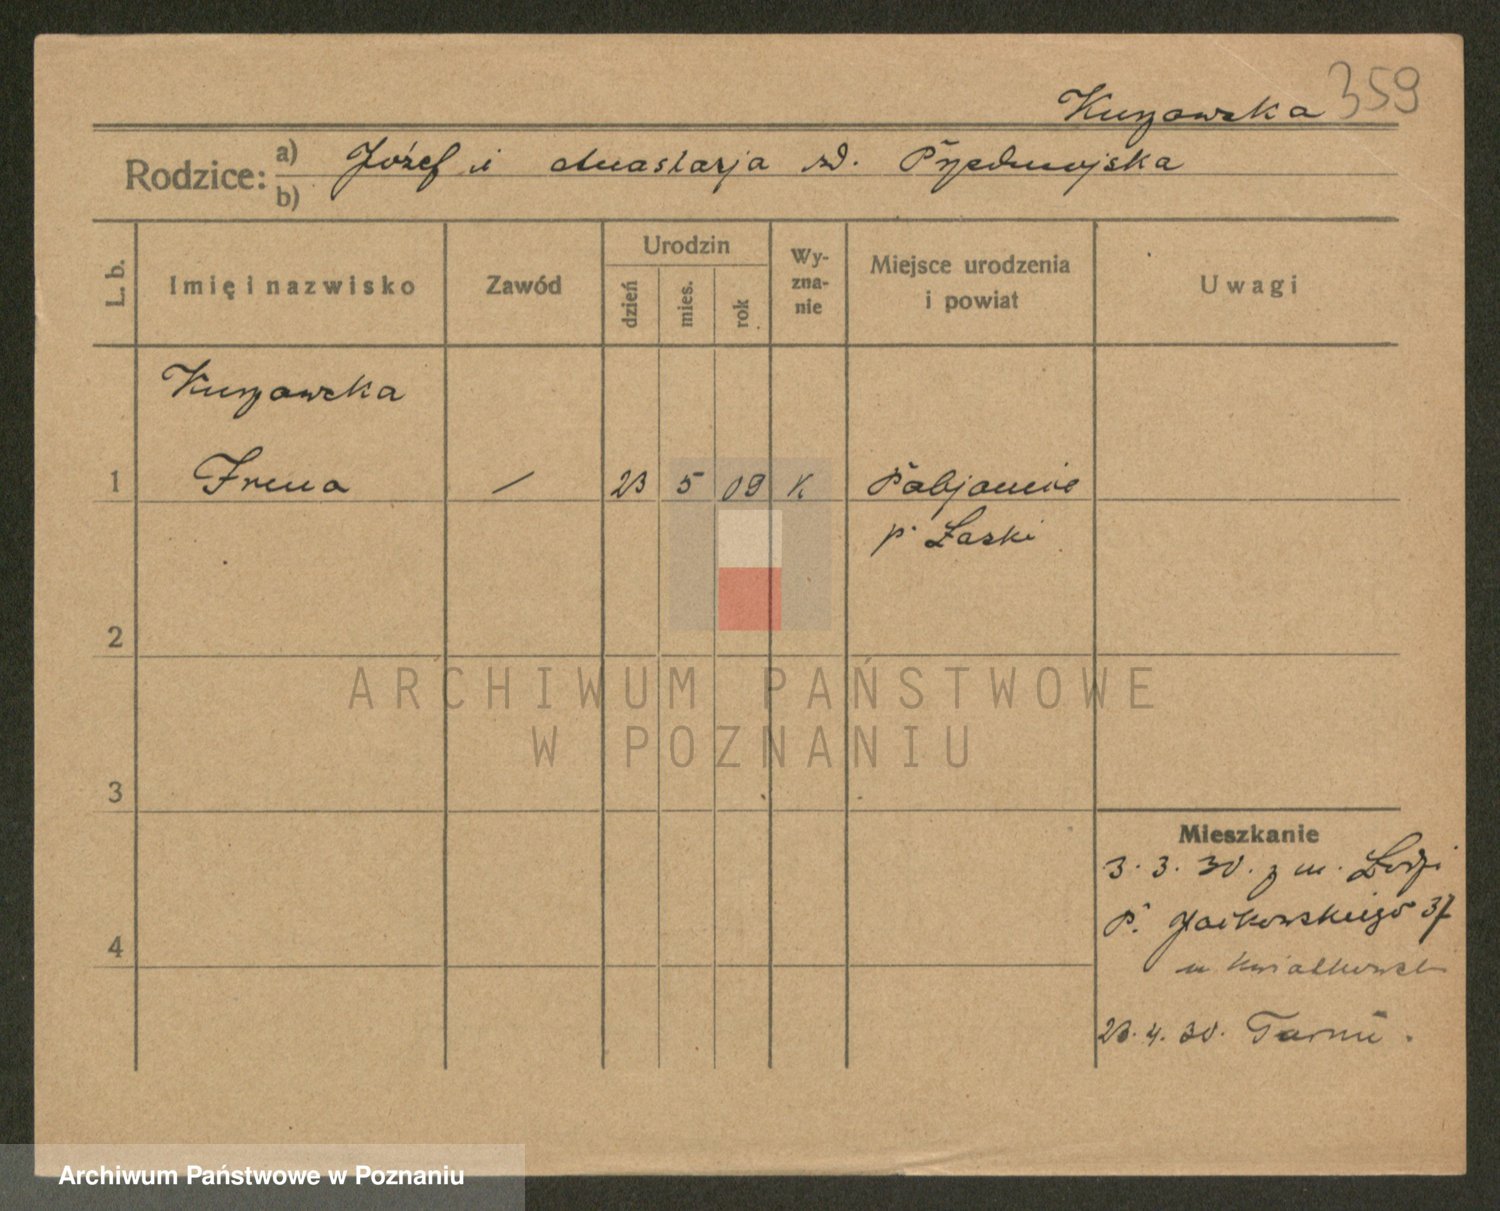 Kurzawska 359
Rodzice: a) Józef i Anastazja zd.
b)
L. b.
Imię i nazwisko
Zawód
Urodzin
dzień
mies.
rok
Wy-
zna-
nie
Miejsce urodzenia
i powiat
Uwagi
Kurzawska
1 Irena / 23 5 09 K Pabjanice
p. Łaski
2
3
4
Mieszkanie
3. 3. 30. z m. Łodzi
P. 37
u
23. 4. 30.
ARCHIWUM PAŃSTWOWE
W POZNANIU
Archiwum Państwowe w Poznaniu